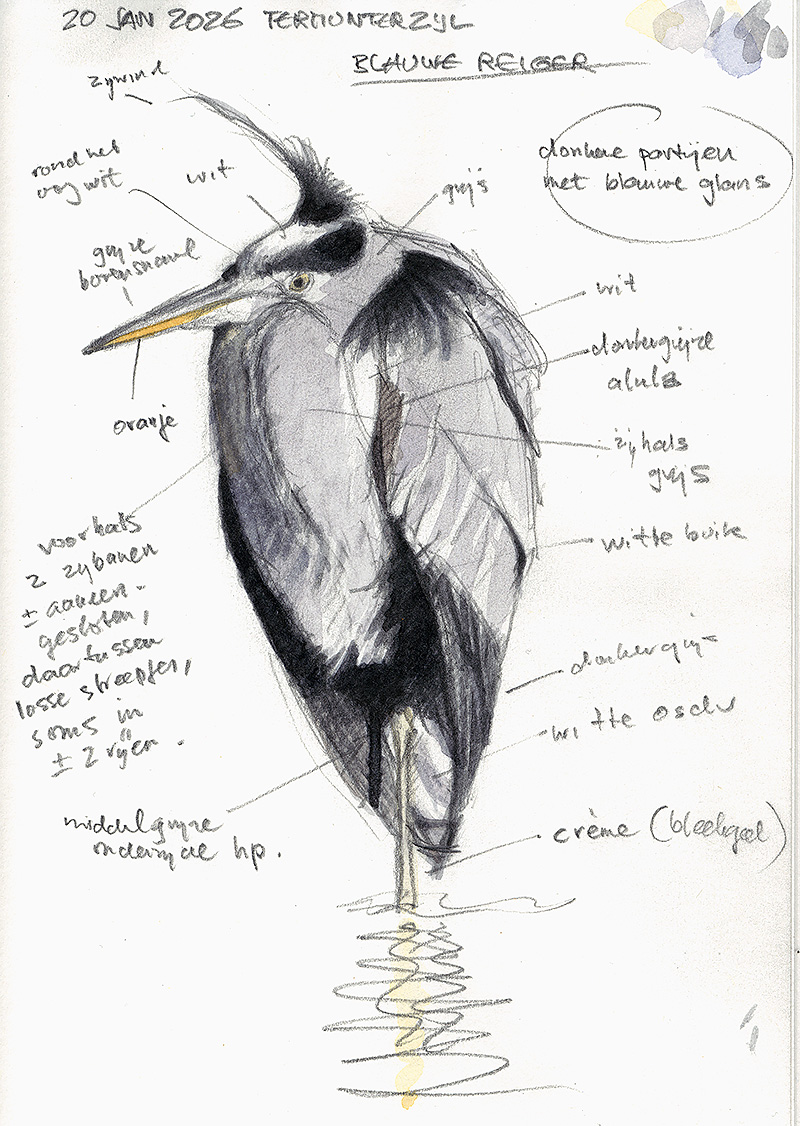 20 JAN 2026 TERMUNTERZIJL
BLAUWE REIGER
zijwind
rond het
oog wit
wit
grijs
donkere partijen
met blauwe glans
grijze
bovensnavel
wit
donkergrijze
alula
oranje
zijhals
grijs
voorhals
2 zijbanen
± aaneen-
gesloten,
daartussen
losse streepjes,
soms in
± 2 rijen.
witte buik
donkergrijs
witte osdv
middelgrijze
onderzijde hp.
crème (bleekgeel)